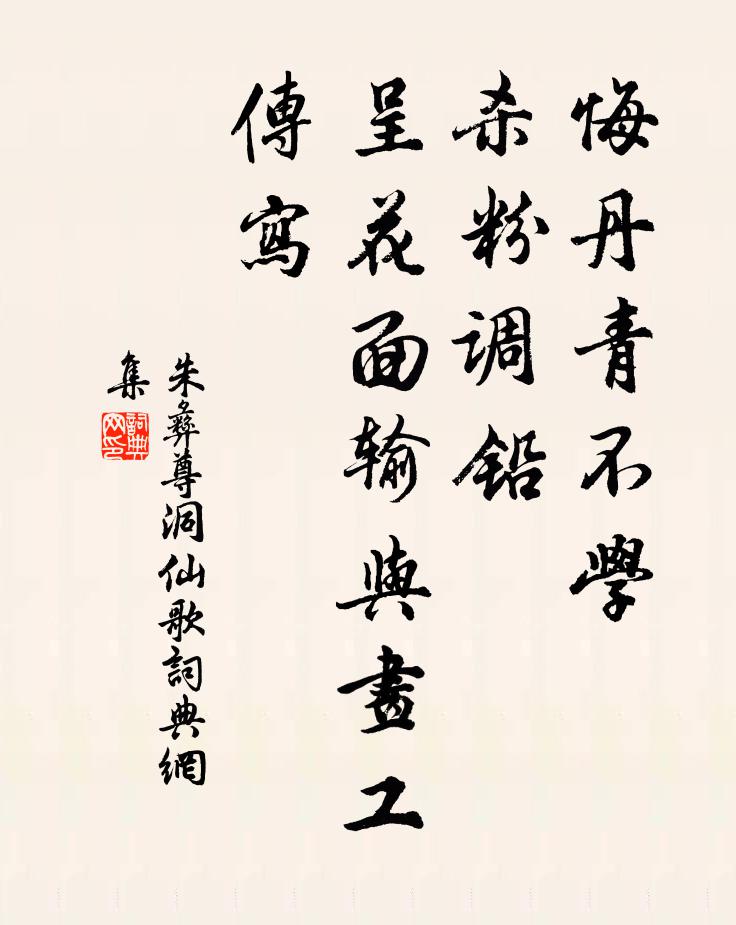 悔丹青不學
杀粉調鉛
呈花面输與畫工
傳寫
朱彝尊洞仙歌詞典網
集
詞典网印